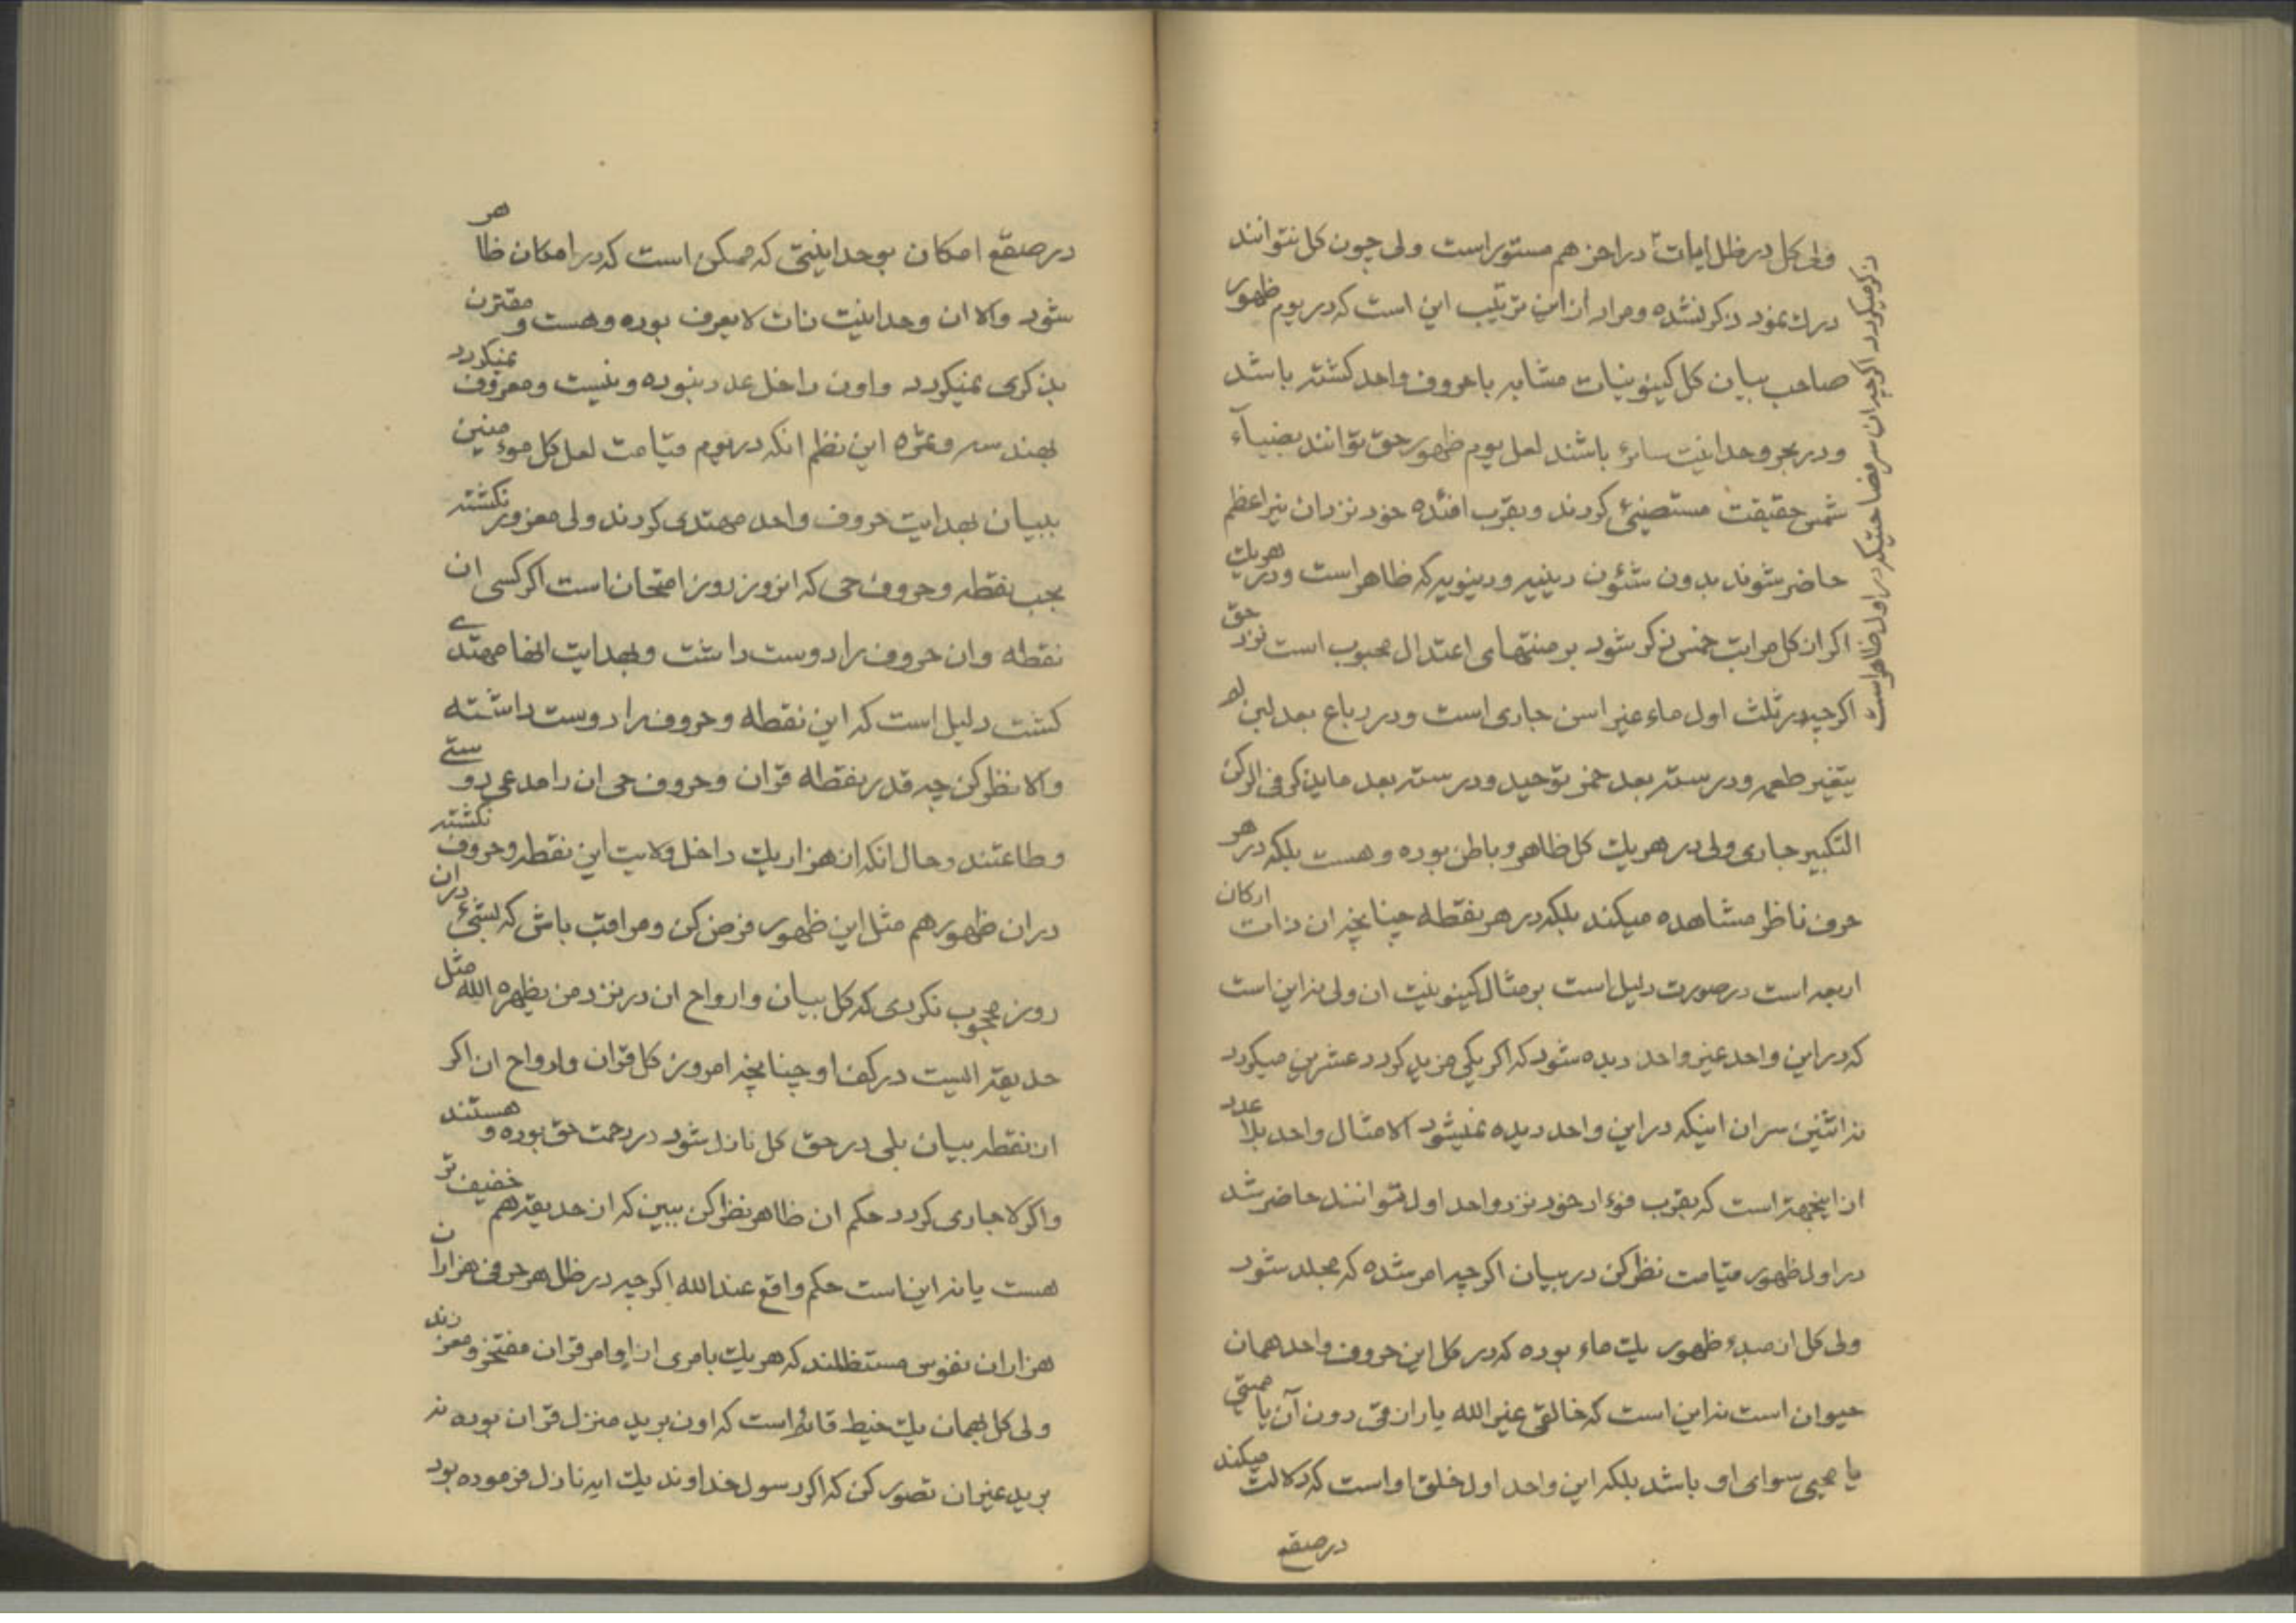 ولی کل در ظل ایات در اخر هم مستور است ولی چون کل نتوانند
درك نمود ذکر نشده و مراد از این ترتیب این است که در یوم ظهور
صاحب بیان کل کینونیات مشابه با حروف واحد کشته باشد
و در بحر وحدانیت سائر باشند لعل یوم ظهور حق توانند بضیآء
شمس حقیقت مستضیئ کردند و بقرب افئده خود نزد ان نیر اعظم
حاضر شوند بدون شئون دینیه و دینویه که ظاهر است و در هریك
اکر ان کل مراتب خمس ذکر شود بر منتهای اعتدال محبوب است نزد حق
اکرچه در ثلث اول ماء غیر اسن جاری است و در رباع بعد لبن لم
یتغیر طعمه و در سته بعد خمر توحید و در سته بعد ما یذکر فی الرکن
التکبیر جاری ولی در هریك کل ظاهر و باطن بوده و هست بلکه در هر
حرف ناظر مشاهده میکند بلکه در هر نقطه چنانچه ان ذات ارکان
اربعه است در صورت دلیل است بر مثال کینونیت ان ولی نه این است
که در این واحد غیر واحد دیده شود که اکر یکی مزید کردد عشرین میکردد
نه اثنین سر ان اینکه در این واحد دیده نمیشود الا مثال واحد بلا عدد
از اینجهة است که بقرب فوءاد خود نزد واحد اول نتوانند حاضر شد
در اول ظهور قیامت نظر کن در بیان اکرچه امر شده که مجلد شود
ولی کل از مبدء ظهور یك ماء بوده که در کل این حروف واحد همان
حیوان است نه این است که خالقی غیر الله یا رازقی دون آن یا ممیتی
یا محیی سوای او باشد بلکه این واحد اول خلق او است که دلالت میکند
در صقع
ذکر میکردد اکرچه ان سر مضا حتیکه در اول ظاهر است
در صقع امکان بوحدانیتی که ممکن است که در امکان ظاهر
شود والا ان وحدانیت ذات لا یعرف بوده و هست و مقترن
بذکری نمیکردد و اون داخل عدد نبوده و نیست و معروف نمیکردد
بهندسه و ثمره این نظم انکه در یوم قیامت لعل کل موءمنین
ببیان بهدایت حروف واحد مهتدی کردند ولی مغرور نکشته
بحب نقطه و حروف حی که انروز روز امتحان است اکر کسی ان
نقطه و ان حروف را دوست داشت و بهدایت انها مهتدی
کشت دلیل است که این نقطه و حروف را دوست داشته
والا نظر کن چه قدر بنقطه قران و حروف حی ان را مدعی دوستی
و طاعتند و حال انکه از هزار یك داخل ولایت این نقطه و حروف نکشته
در ان ظهور هم مثل این ظهور فرض کن و مراقب باش که بشیئ در ان
روز محجوب نکردی که کل بیان و ارواح ان در نزد من یظهره الله مثل
حدیقه ایست در کف او چنانچه امروز کل قران و ارواح ان اکر
از نقطه بیان بلی در حق کل نازل شود در رحمت حق بوده و هستند
و اکر لا جاری کردد حکم ان ظاهر نظر کن ببین که از حدیقه هم خفیف تر
هست یا نه این است حکم واقع عند الله اکرچه در ظل هر حرفی هزاران
هزاران نفوس مستظلند که هریك بامری از اوامر قران مفتخر و معززند
ولی کل بهمان یك خیط قائم است که اون برید منزل قران بوده نه
برید غیر ان تصور کن که اکر رسول خداوند یك ایه نازل فرموده بود